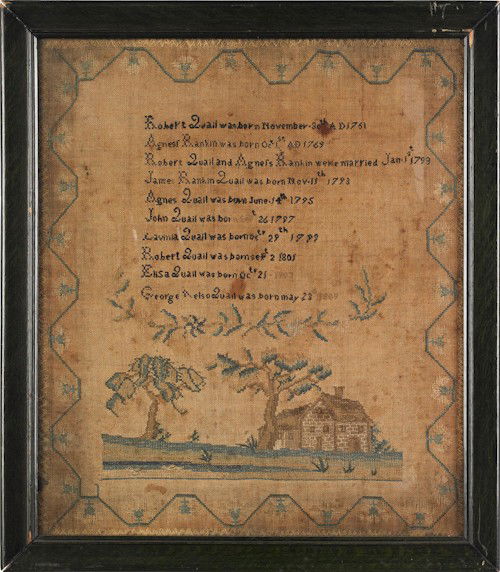 Robert Quail was born November 30th AD 1761
Agness Rankin was born Oct 1st AD 1769
Robert Quail and Agness Rankin were married Jan 1st 1793
James Rankin Quail was born Nov 11th 1793
Agnes Quail was born June 14th 1795
John Quail was born 26 1797
Lavinia Quail was born 29th 1799
Robert Quail was born sept 2 1801
Elisa Quail was born Octr 21
George Kelso Quail was born may 23